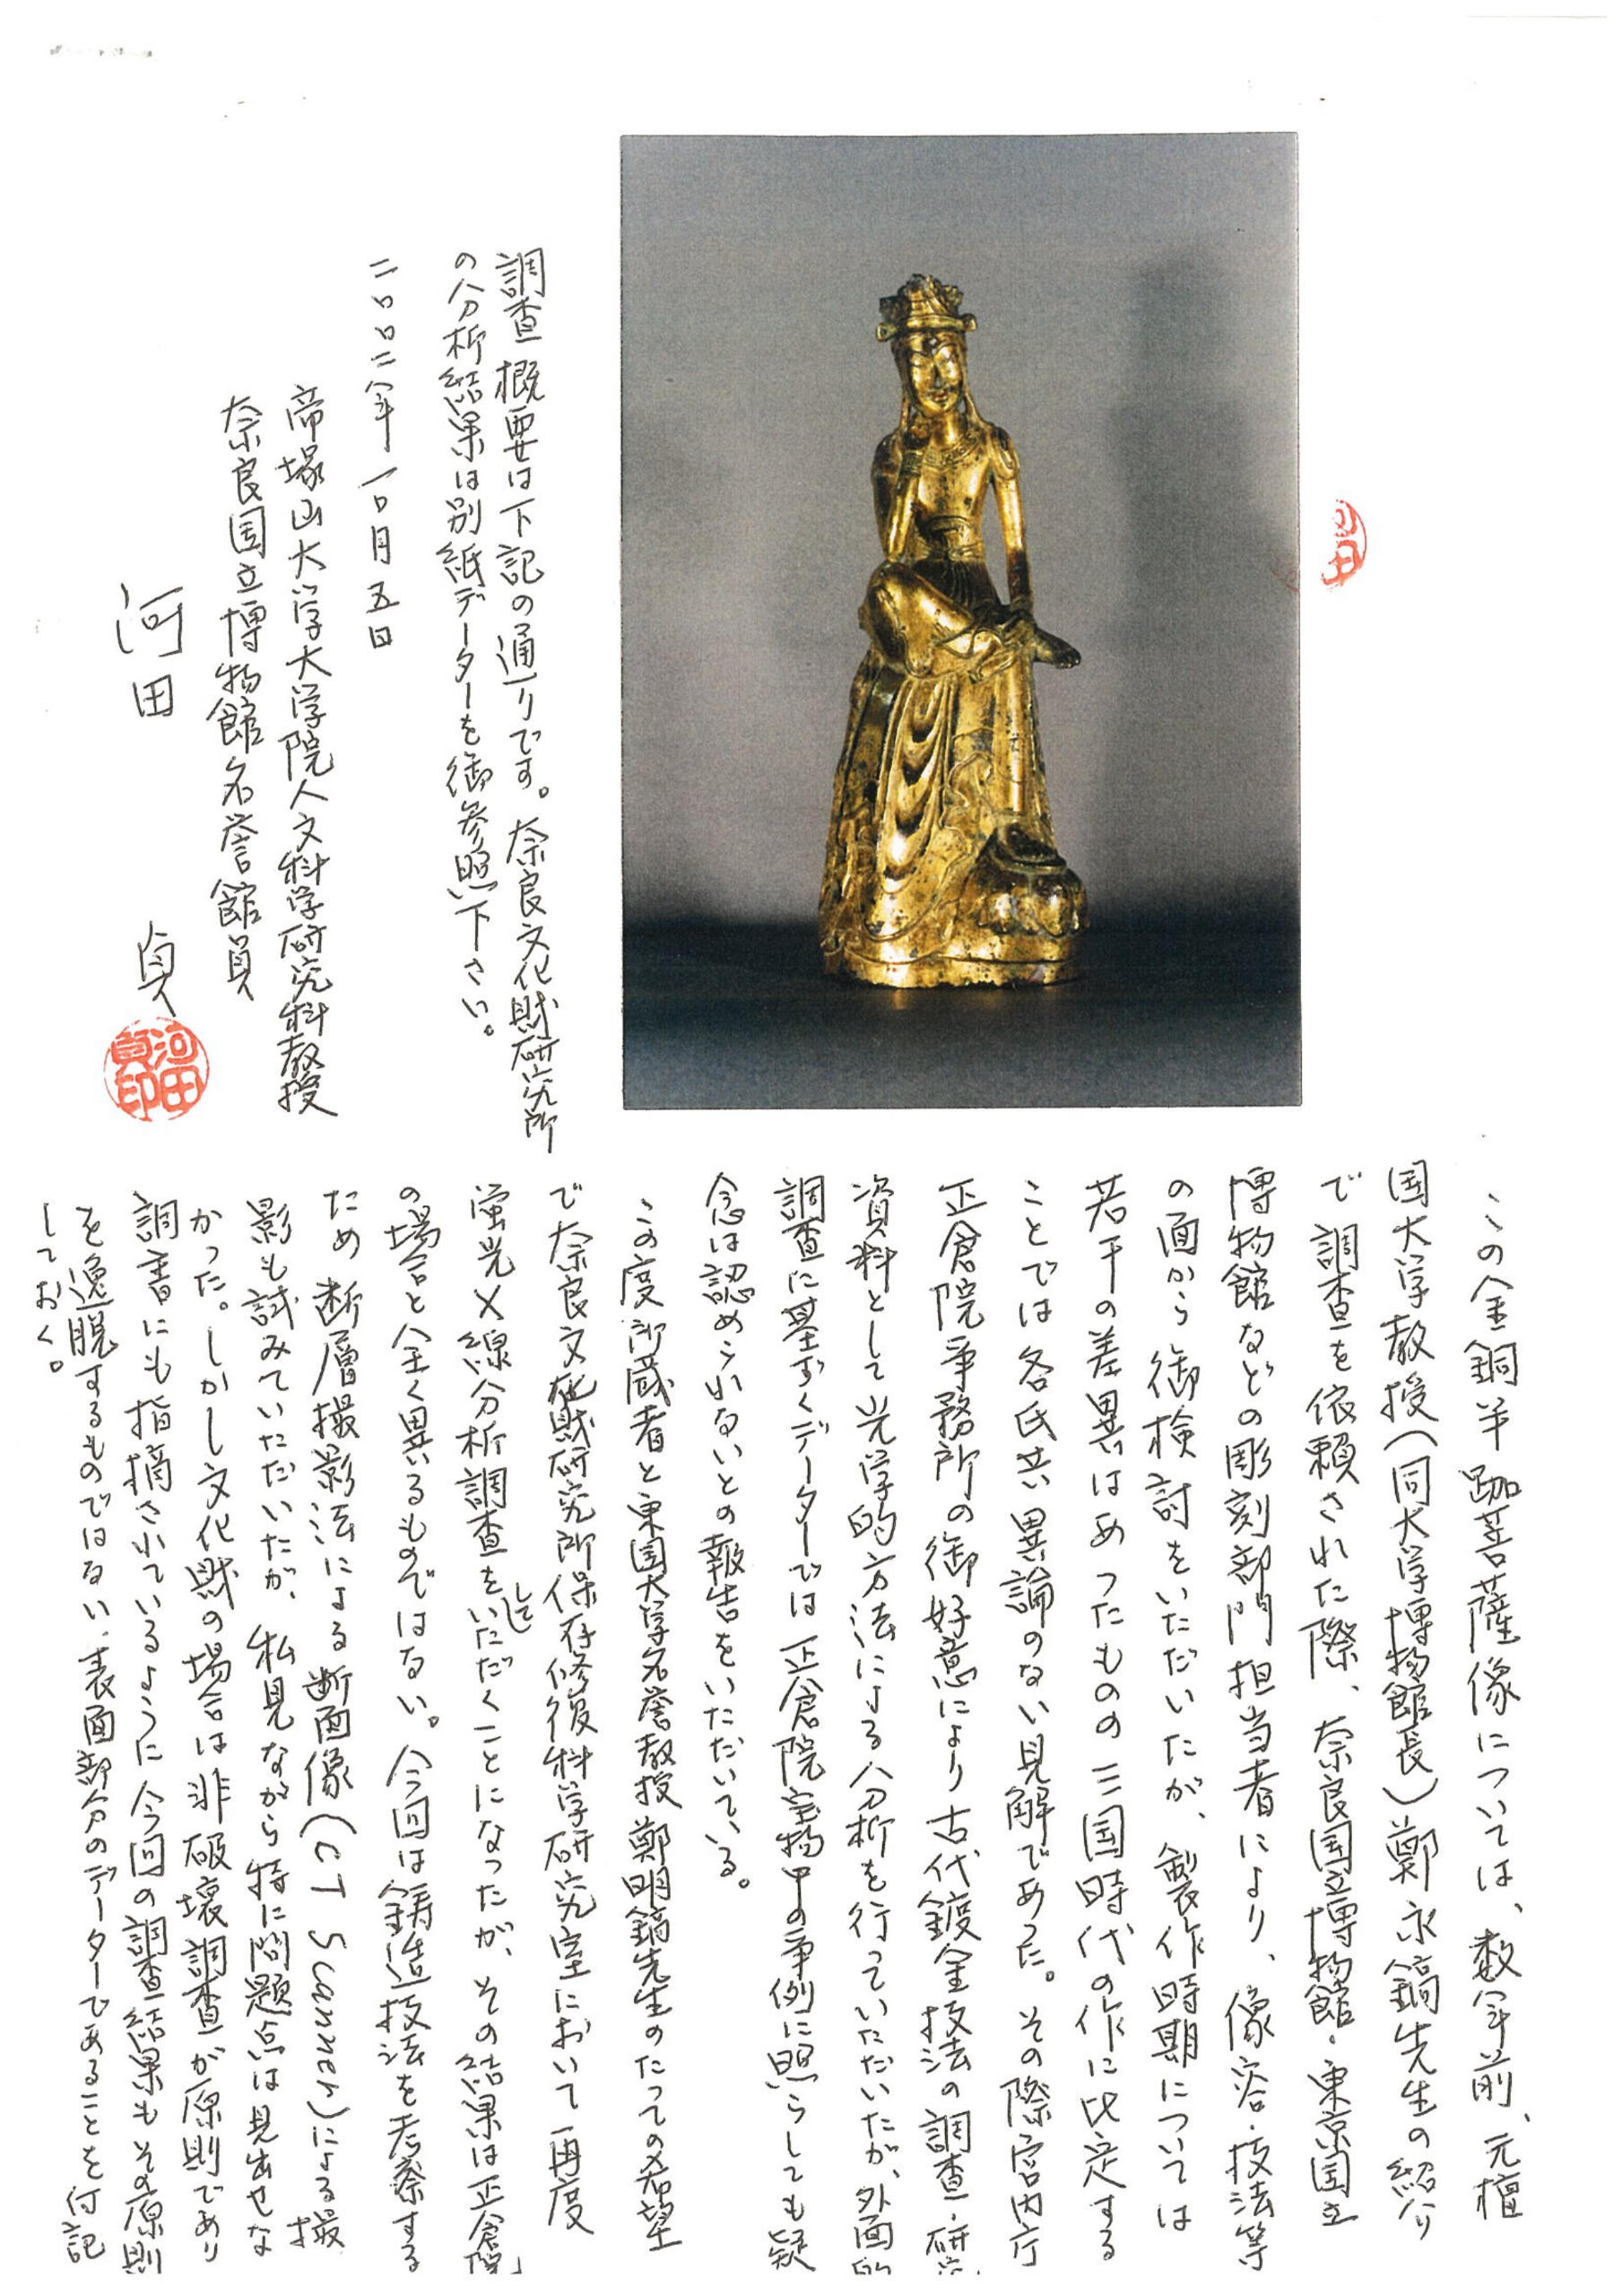 調査概要は下記の通りです。奈良文化財研究所
の分析結果は別紙データーを御参照下さい。
二〇〇二年一〇月五日
帝塚山大学大学院人文科学研究科教授
奈良国立博物館名誉館員
河田 貞
河田貞印
河田
この金銅半跏菩薩像については、数年前、元檀
国大学教授(同大学博物館長)鄭永鎬先生の紹介
で調査を依頼された際、奈良国立博物館・東京国立
博物館などの彫刻部門担当者により、像容・技法等
の面から御検討をいただいたが、製作時期については
若干の差異はあったものの三国時代の作に比定する
ことでは各氏共異論のない見解であった。その際宮内庁
正倉院事務所の御好意により古代鍍金技法の調査・研究
資料として光学的方法による分析を行っていただいたが、外面的
調査に基ずくデーターでは正倉院宝物中の事例に照らしても疑
念は認められないとの報告をいただいている。
この度所蔵者と東国大学名誉教授鄭明鎬先生のたっての希望
で奈良文化財研究所保存修復科学研究室において再度
蛍光X線分析調査をしていただくことになったが、その結果は正倉院
の場合と全く異るものではない。今回は鋳造技法を考察する
ため断層撮影法による断面像(CT Scanner)による撮
影も試みていただいたが、私見ながら特に問題点は見出せな
かった。しかし文化財の場合は非破壊調査が原則であり
調書にも指摘されているように今回の調査結果もその原則
を逸脱するものではない、表面部分のデーターであることを付記
しておく。